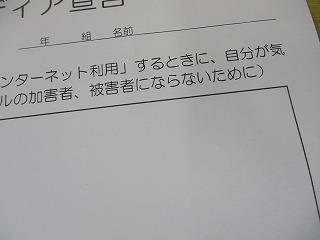 ディア宣言
年　組　名前
ンターネット利用」するときに、自分が気
ルの加害者、被害者にならないために）